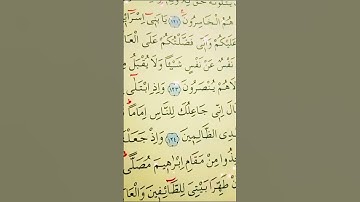 هُمُ الْخَاسِرُونَ ﴿١٢١﴾ يَا بَنٖٓى اِسْرَٓا
عَلَيْكُمْ وَاَنّٖى فَضَّلْتُكُمْ عَلَى الْعَا
نَفْسٌ عَنْ نَفْسٍ شَيْـًٔا وَلَا يُقْبَلُ
لَاهُمْ يُنْصَرُونَ ﴿١٢٣﴾ وَاِذِ ابْتَلٰٓى
الَ اِنّٖى جَاعِلُكَ لِلنَّاسِ اِمَامًا
دِى الظَّالِمٖينَ ﴿١٢٤﴾ وَاِذْ جَعَلْنَا
ذُوا مِنْ مَقَامِ اِبْرٰهٖيمَ مُصَلًّى
نْ طَهِّرَا بَيْتِىَ لِلطَّٓائِفٖينَ وَالْعَا